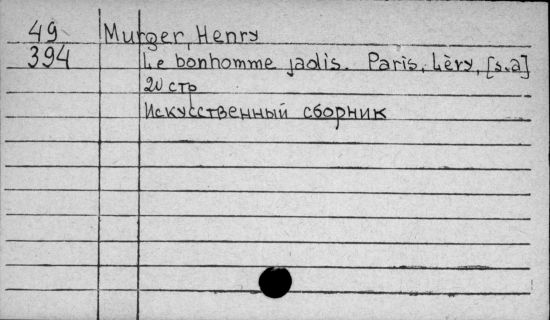 49 Murger, Henry
394 Le bonhomme jadis. Paris, Lèvy, [s.a]
20 стр
Искусственный сборник